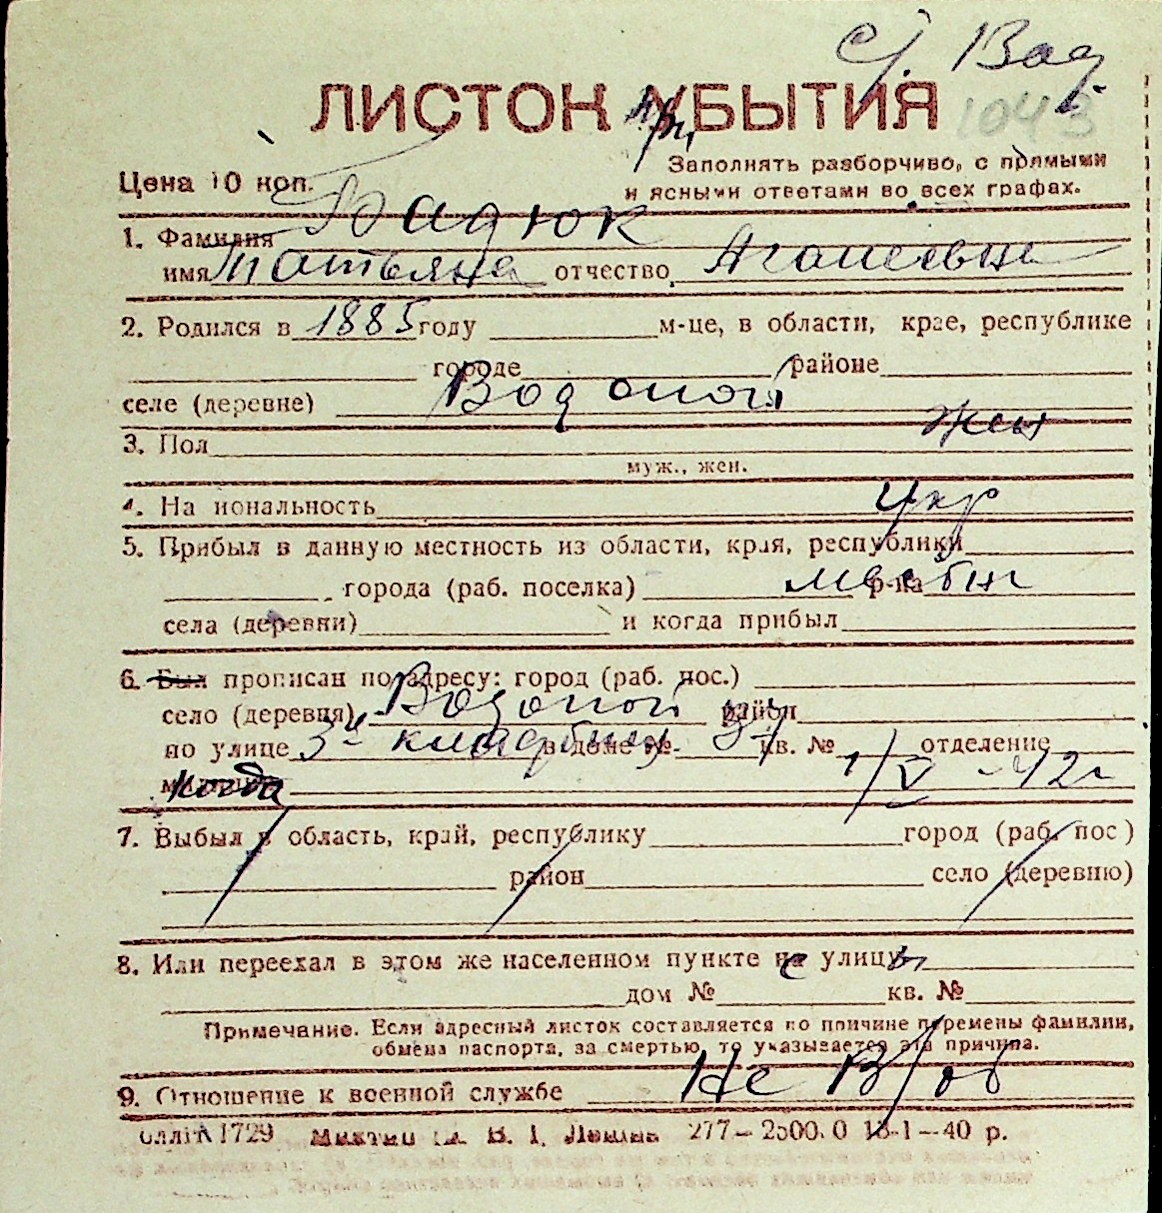 с. Вод.
ЛИСТОК УБЫТИЯ
при
1043
Заполнять разборчиво, с прямыми
Цена 10 коп.
и ясными ответами во всех графах.
1. Фамилия Бадюк
имя Татьяна отчество
2. Родился в 1885 году м-це, в области, крае, республике
городе районе
селе (деревне) Водопой
3. Пол жен
муж., жен.
4. На иональность укр
5. Прибыл в данную местность из области, края, республики
города (раб. поселка) р-на
села (деревни) и когда прибыл
6. Был прописан по адресу: город (раб. пос.)
село (деревня) Водопой район
по улице 3я в доме № 37 кв. № отделение
когда 1/V - 42 г
7. Выбыл в область, край, республику город (раб. пос )
район село (деревню)
8. Или переехал в этом же населенном пункте на улицу
дом № кв. №
Примечание. Если адресный листок составляется по причине перемены фамилии,
обмена паспорта, за смертью, то указывается эта причина.
9. Отношение к военной службе Не в/об
1729 277—2500.0 13-1—40 р.